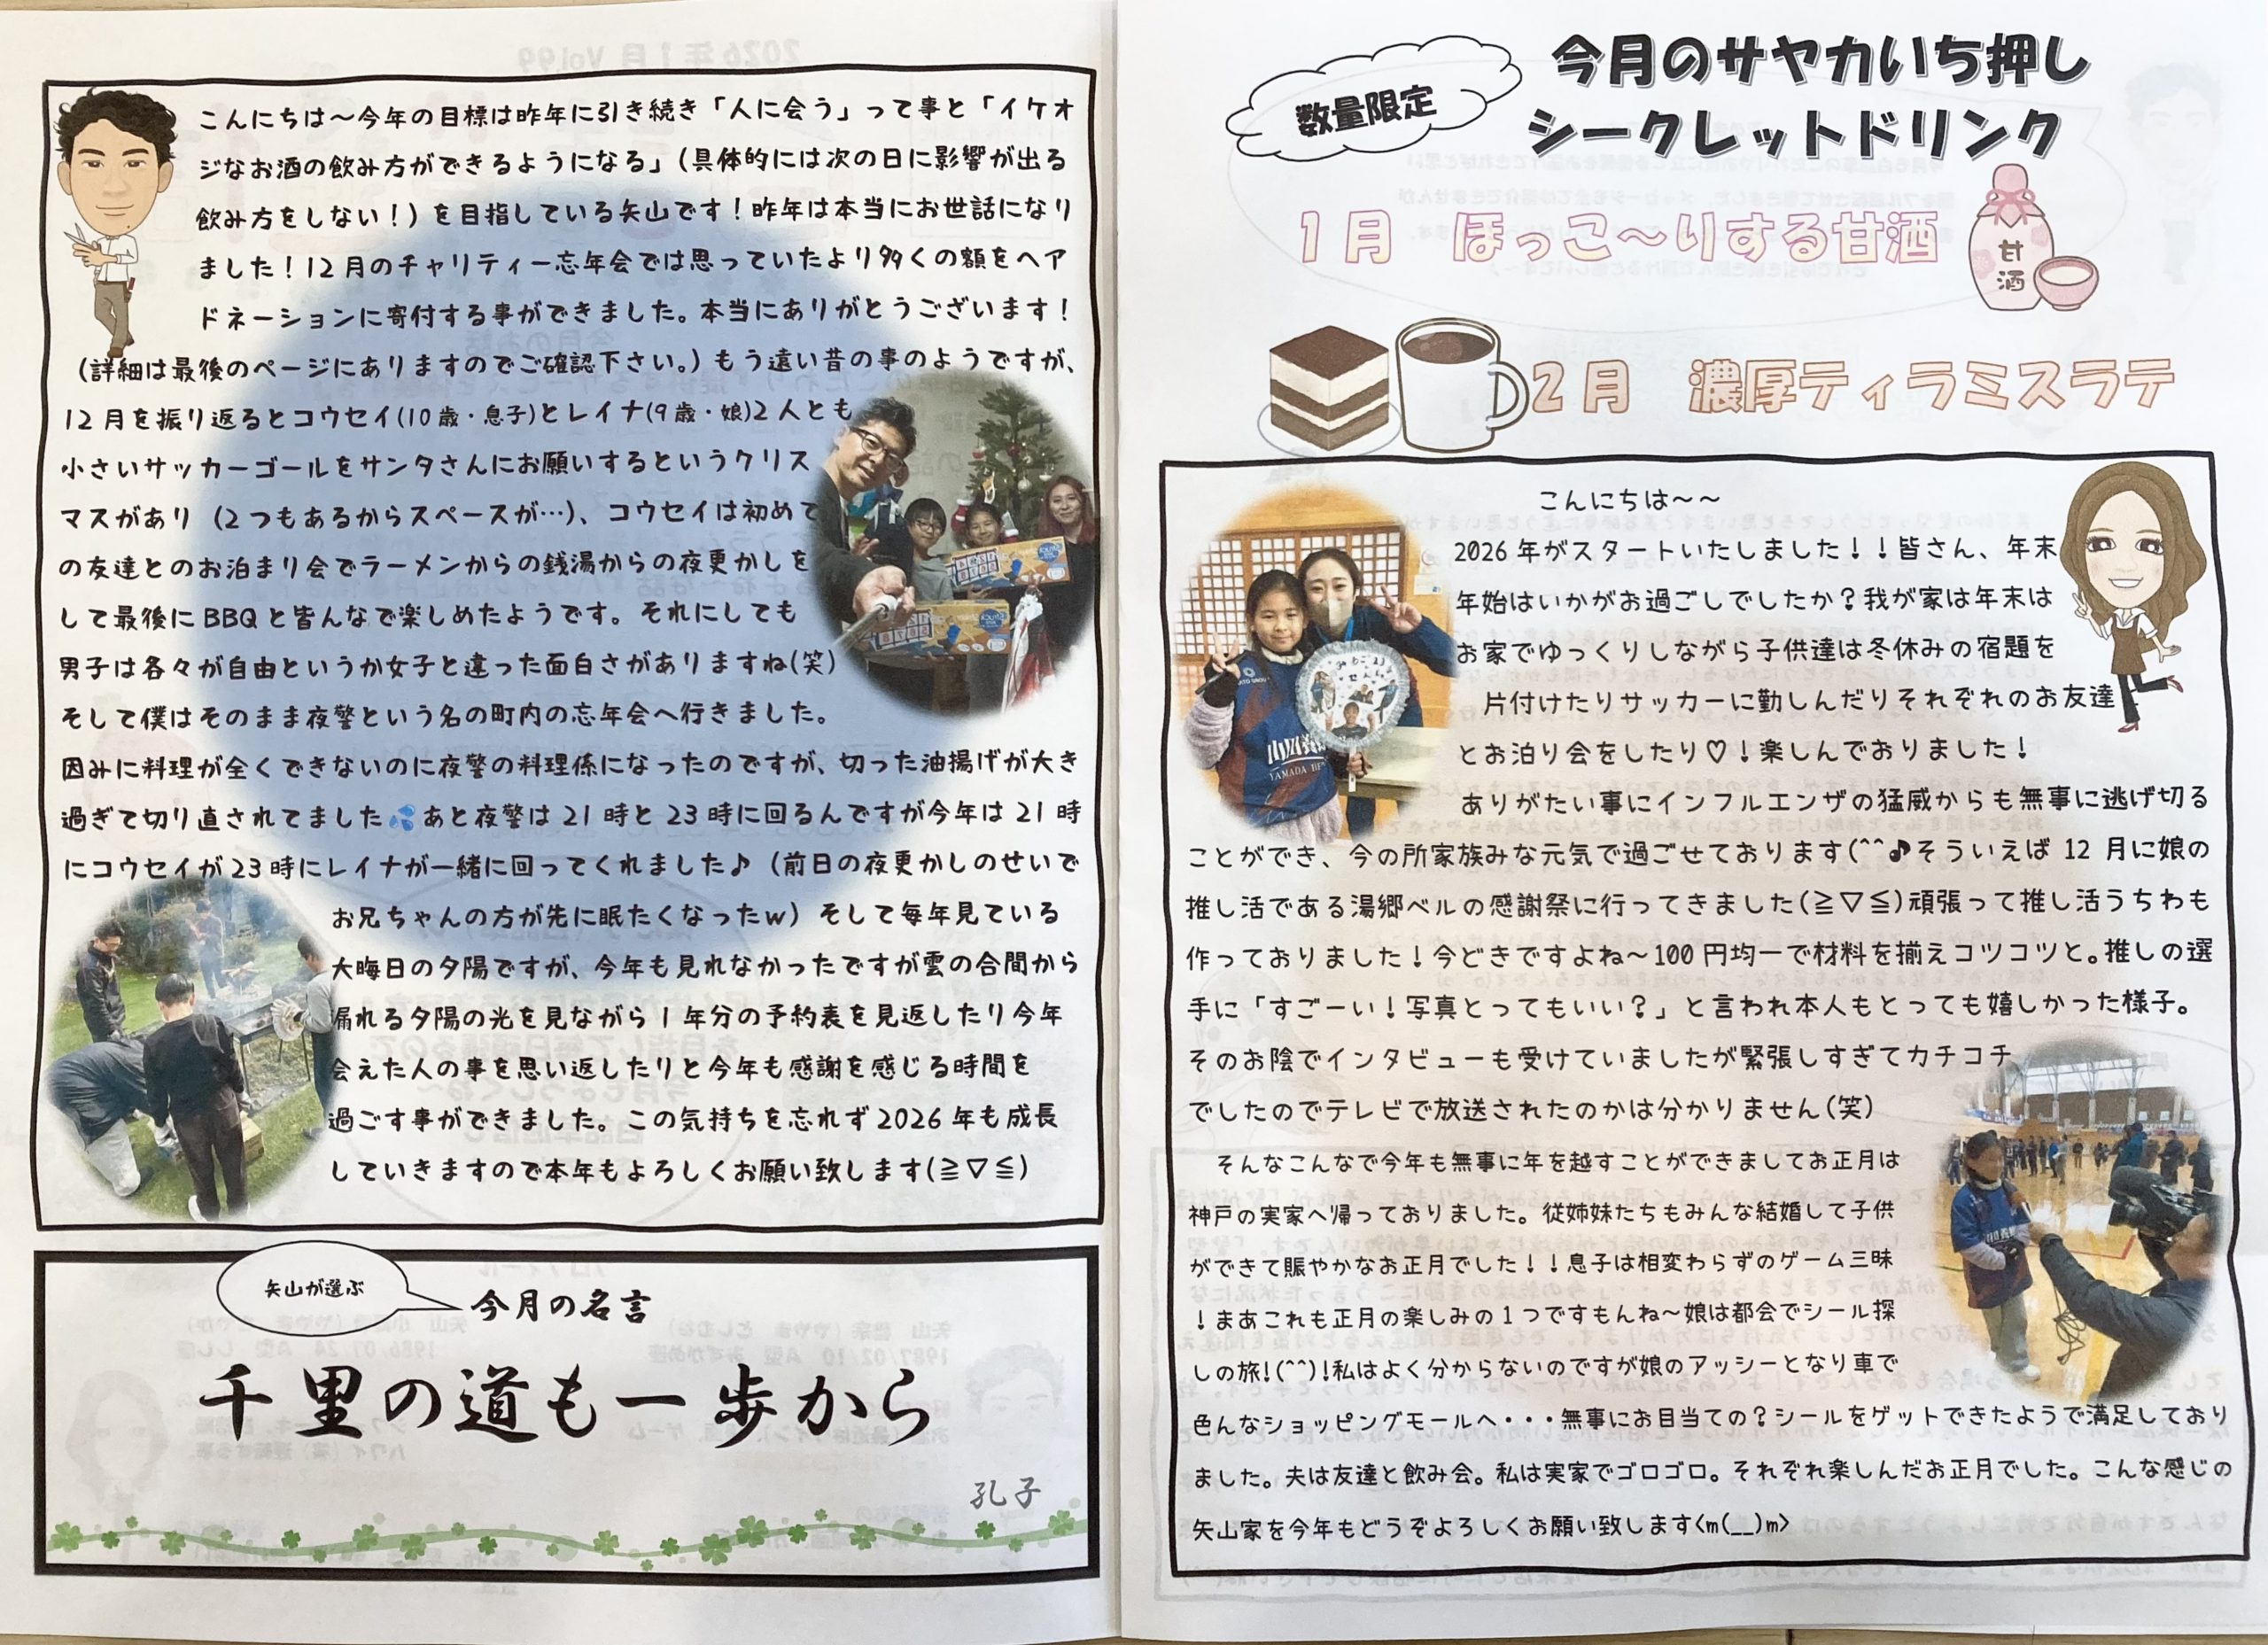 こんにちは～今年の目標は昨年に引き続き「人に会う」って事と「イケオ
ジなお酒の飲み方ができるようになる」（具体的には次の日に影響が出る
飲み方をしない！）を目指している矢山です！昨年は本当にお世話になり
ました！12月のチャリティー忘年会では思っていたより多くの額をヘア
ドネーションに寄付する事ができました。本当にありがとうございます！
（詳細は最後のページにありますのでご確認下さい。）もう遠い昔の事のようですが、
12月を振り返るとコウセイ(10歳・息子)とレイナ(9歳・娘)2人とも
小さいサッカーゴールをサンタさんにお願いするというクリス
マスがあり（2つもあるからスペースが…）、コウセイは初めて
の友達とのお泊まり会でラーメンからの銭湯からの夜更かしを
して最後にBBQと皆んなで楽しめたようです。それにしても
男子は各々が自由というか女子と違った面白さがありますね(笑)
そして僕はそのまま夜警という名の町内の忘年会へ行きました。
因みに料理が全くできないのに夜警の料理係になったのですが、切った油揚げが大き
過ぎて切り直されてました💦あと夜警は21時と23時に回るんですが今年は21時
にコウセイが23時にレイナが一緒に回ってくれました♪（前日の夜更かしのせいで
お兄ちゃんの方が先に眠たくなったｗ）そして毎年見ている
大晦日の夕陽ですが、今年も見れなかったですが雲の合間から
漏れる夕陽の光を見ながら1年分の予約表を見返したり今年
会えた人の事を思い返したりと今年も感謝を感じる時間を
過ごす事ができました。この気持ちを忘れず2026年も成長
していきますので本年もよろしくお願い致します(≧▽≦)
矢山が選ぶ
今月の名言
千里の道も一歩から
孔子
数量限定
今月のサヤカいち押し
シークレットドリンク
1月　ほっこ～りする甘酒
甘酒
2月　濃厚ティラミスラテ
こんにちは～～
2026年がスタートいたしました！！皆さん、年末
年始はいかがお過ごしでしたか？我が家は年末は
お家でゆっくりしながら子供達は冬休みの宿題を
片付けたりサッカーに勤しんだりそれぞれのお友達
とお泊り会をしたり♡！楽しんでおりました！
ありがたい事にインフルエンザの猛威からも無事に逃げ切る
ことができ、今の所家族みな元気で過ごせております(^^♪そういえば12月に娘の
推し活である湯郷ベルの感謝祭に行ってきました(≧▽≦)頑張って推し活うちわも
作っておりました！今どきですよね～100円均一で材料を揃えコツコツと。推しの選
手に「すごーい！写真とってもいい？」と言われ本人もとっても嬉しかった様子。
そのお陰でインタビューも受けていましたが緊張しすぎてカチコチ
でしたのでテレビで放送されたのかは分かりません(笑)
そんなこんなで今年も無事に年を越すことができましてお正月は
神戸の実家へ帰っておりました。従姉妹たちもみんな結婚して子供
ができて賑やかなお正月でした！！息子は相変わらずのゲーム三昧
！まあこれも正月の楽しみの1つですもんね～娘は都会でシール探
しの旅!(^^)!私はよく分からないのですが娘のアッシーとなり車で
色んなショッピングモールへ・・・無事にお目当ての？シールをゲットできたようで満足しており
ました。夫は友達と飲み会。私は実家でゴロゴロ。それぞれ楽しんだお正月でした。こんな感じの
矢山家を今年もどうぞよろしくお願い致します<m(__)m>